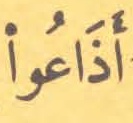 أَذَاعُوا۟